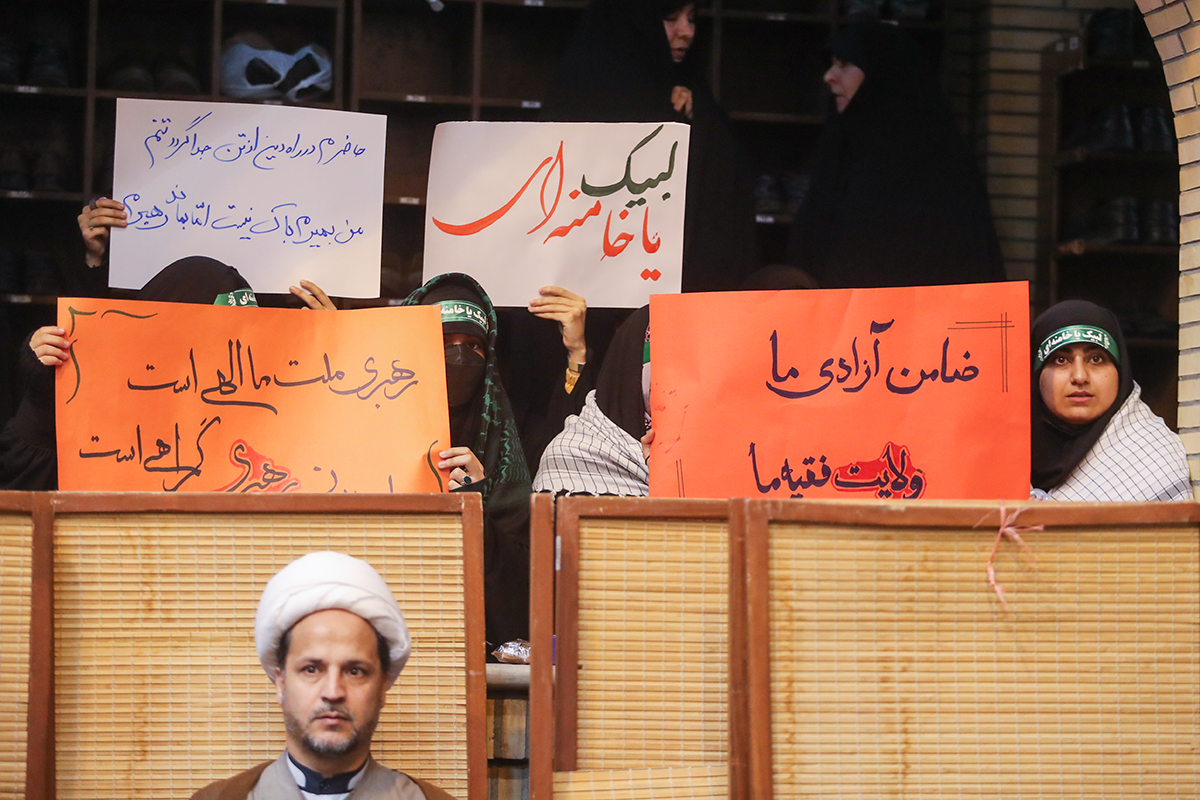 حاضرم در راه دین از تن جدا گردد تنم
من بمیرم باک نیست اما بماند رهبرم
لبیک
یا خامنه ای
رهبری ملت ما الهی است
رهبری گمراهی است
ضامن آزادی ما
ولایت فقیه ما
لبیک یا خامنه‌ای
لبیک یا خامنه‌ای